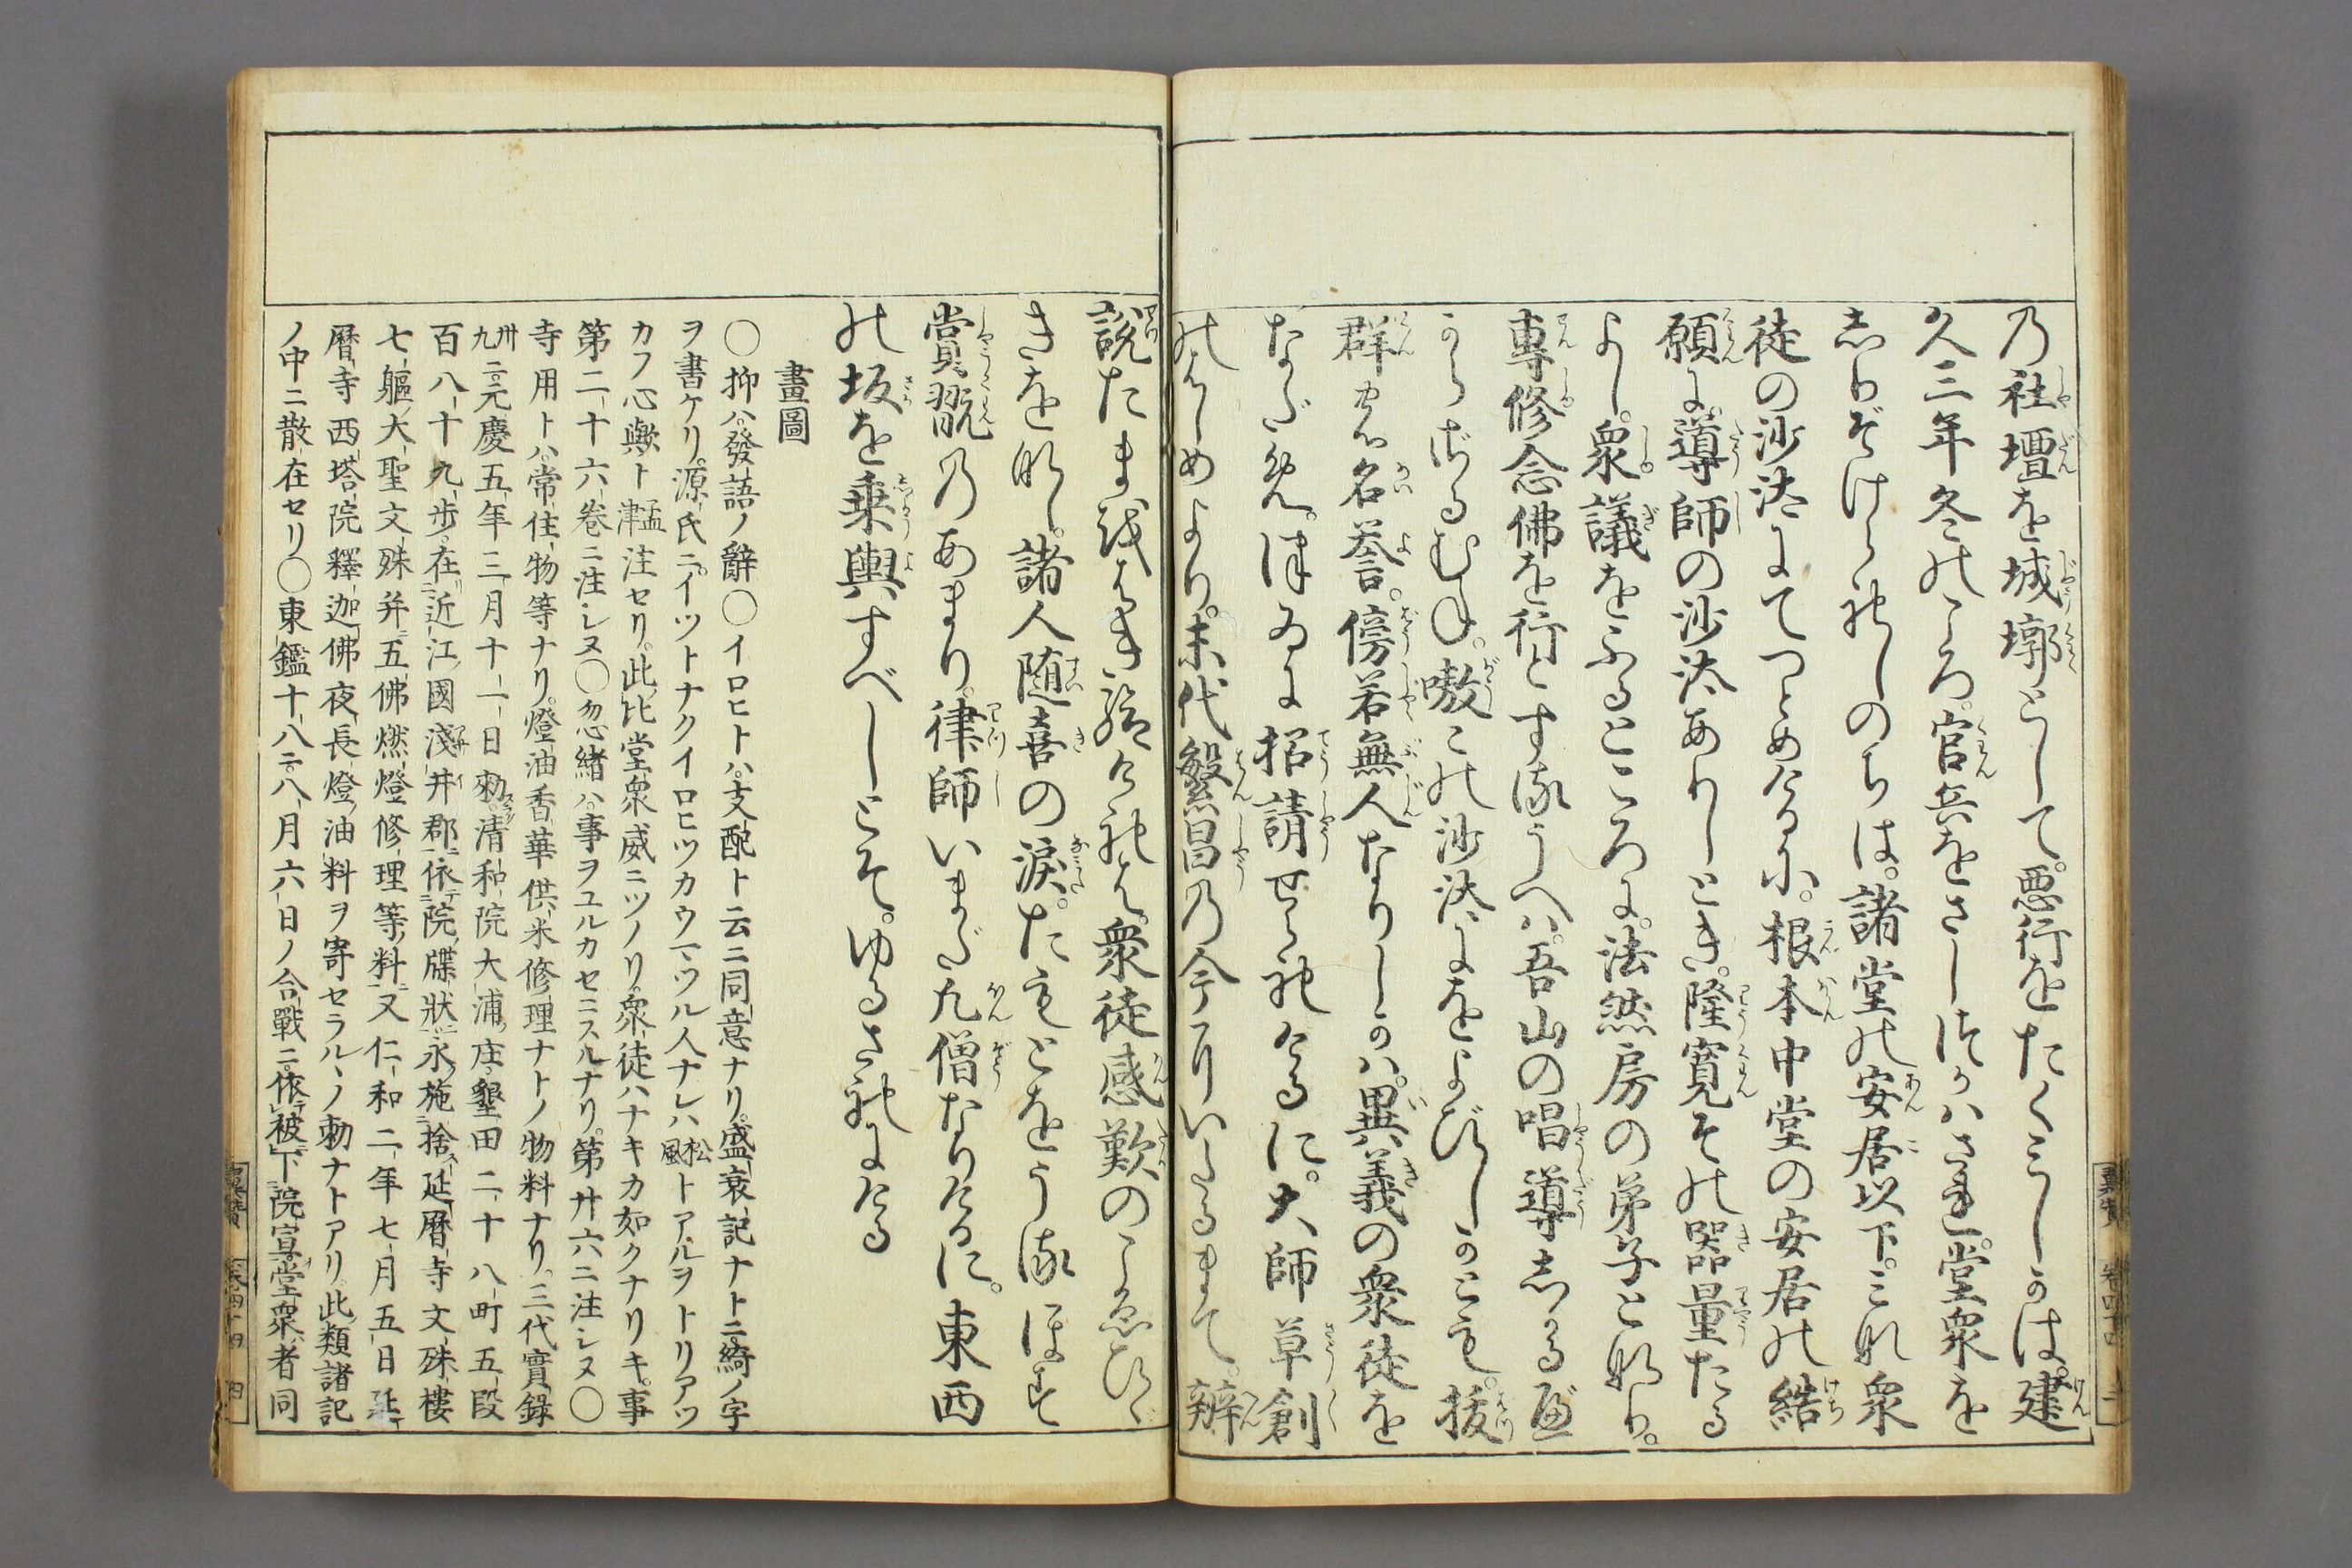 乃社壇を城墎として。悪行をたくみしかは。建
久三年冬のころ。官兵をさしつかハされ。堂衆を
しりぞけられしのちは。諸堂の安居以下。みな衆
徒の沙汰にてつとめけるに。根本中堂の安居の結
願に。導師の沙汰ありしとき。隆寛その器量たる
よし。衆議をふるところに。法然房の弟子となり。
專修念佛を行とするうへハ。吾山の唱導しかるべ
からざるむね。嗷々の沙汰にをよびしかとも。抜
群の名誉。傍若無人なりしかハ。異義の衆徒を
なだめ。つゐに招請せられけるに。大師草創
のはしめより。末代繁昌の今にいたるまて。辨
説たまをはき給けれは。衆徒感歎のこゑひゞ
きをなし。諸人随喜の涙。たもとをうるほす
賞翫のあまり。律師いまだ凡僧なりけるに。東西
の坂を乗輿すべしとそ。ゆるされにける
畫圖
○抑ハ發語ノ辭○イロヒトハ支配ト云ニ同意ナリ。盛衰記ナトニ綺ノ字
ヲ書ケリ。源氏ニイツトナクイロヒツカウマツル人ナレハ松風トアルヲトリアツ
カフ心歟ト孟津注セリ。此比堂衆威ニツノリ。衆徒ハナキカ如クナリキ。事
第二十六卷ニ注シヌ○忽緒ハ事ヲユルカセニスルナリ。第廿六ニ注シヌ○
寺用トハ常住物等ナリ。燈油香華供米修理ナトノ物料ナリ。三代實錄
卅九ニ元慶五年三月十一日勅清和院大浦庄墾田二十八町五段
百八十九歩。在近江國淺井郡依院牒狀永施捨延曆寺文殊樓
七軀大聖文殊并五佛燃燈修理等料又仁和二年七月五日延
曆寺西塔院釋迦佛夜長燈油料ヲ寄セラルヽノ勅ナトアリ。此類諸記
ノ中ニ散在セリ○東鑑十八ニ八月六日ノ合戰ニ依被下院宣堂衆者同